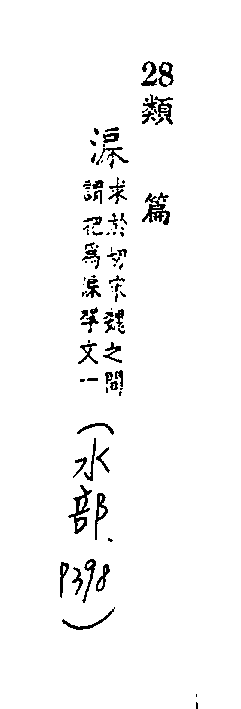 28
類篇
渠
求於切宋魏之間
謂杷為渠挐文一
(水部、P398)